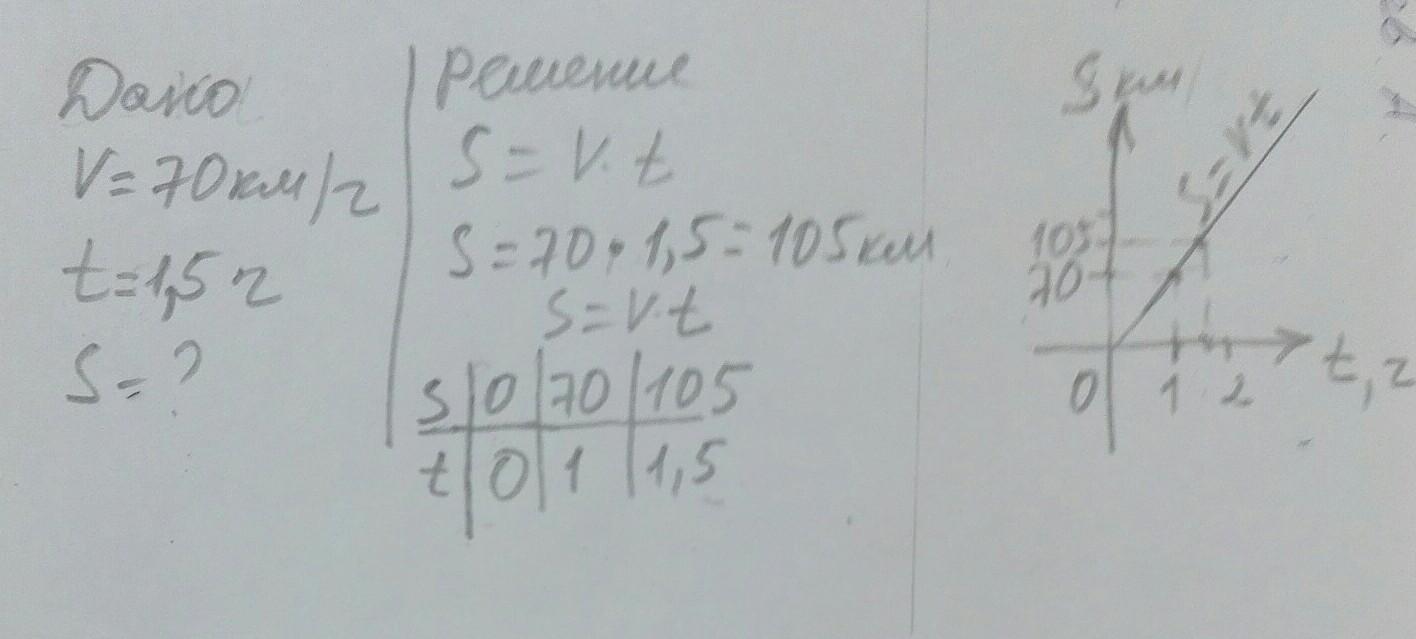 Дано
V=70км/г
t=1,5 г
S=?
Решение
S=V·t
S=70·1,5=105км
S=V·t
S 0 70 105
t 0 1 1,5
S км
105
70
0 1 2 t, г